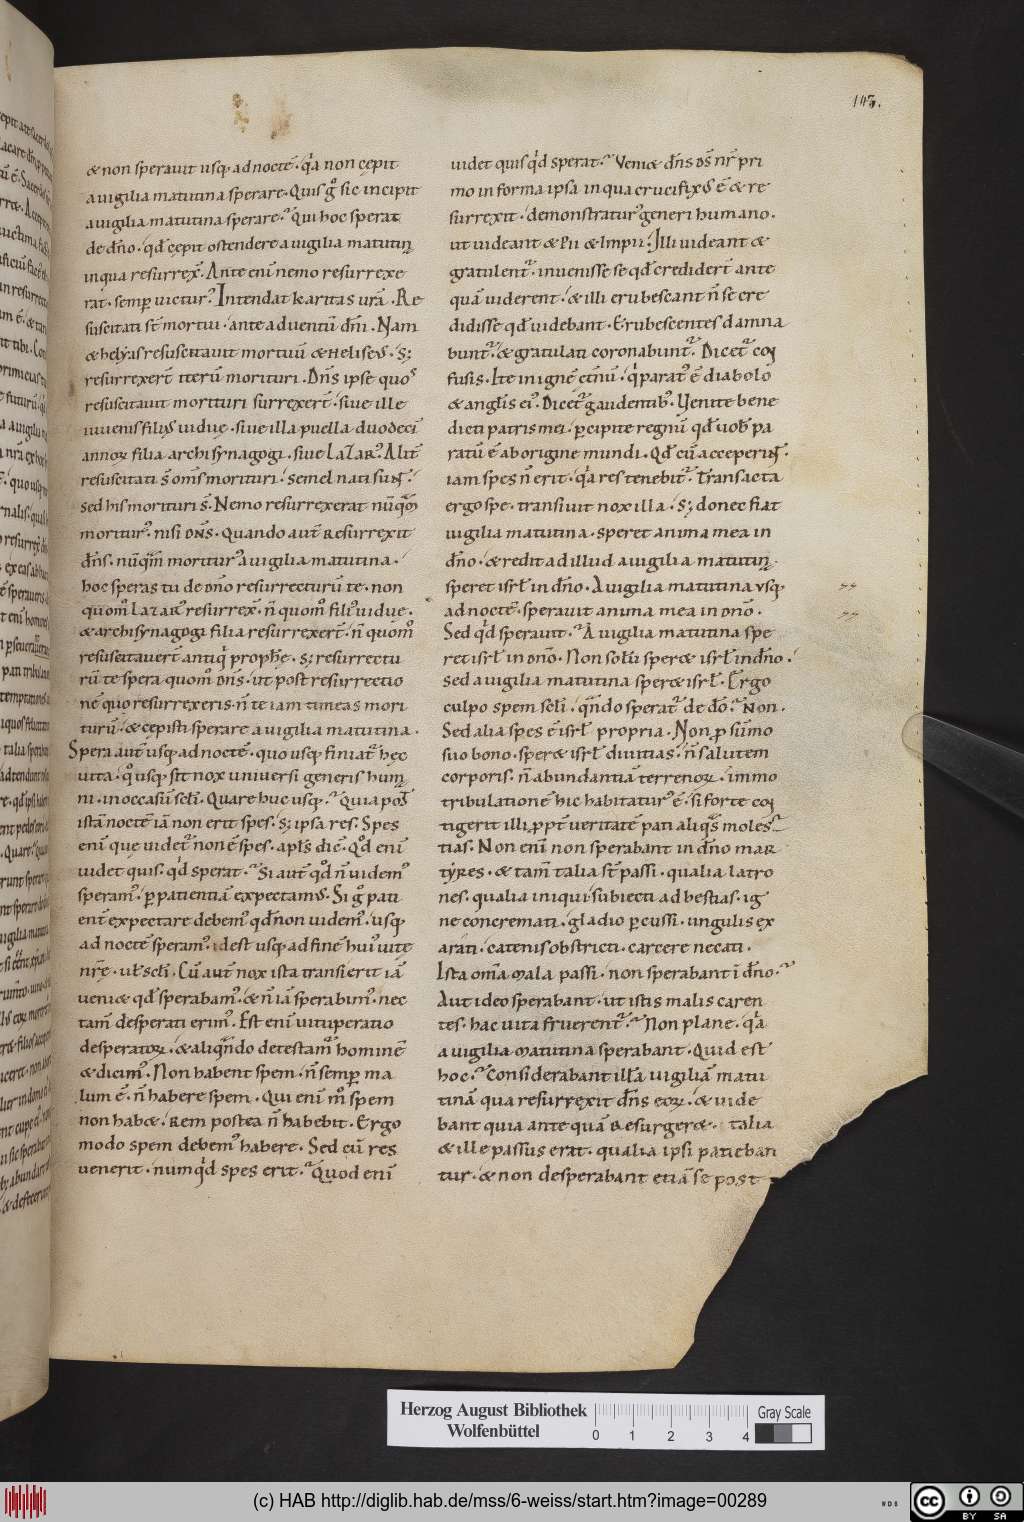 143.
& non sperauit usq; ad noctē. q̓a non cępit
a uigilia matutina sperare. Quis g̊ sic incipit
a uigilia matutina sperare? Qui hoc sperat
de dño. qđ cępit ostendere a uigilia matutin̄
in qua resurrex̄. Ante enī nemo resurrexe
rat. semp̄ uictur᾿. Intendat karitas ur̄a. Re
suscitati st̄ mortui. ante aduentū dñi. Nam
& helyas resuscitauit mortuū & heliseus. s;
resurrexer̄t iterū morituri. Dñs ipse quos
resuscitauit morituri surrexer̄t. siue ille
iuuenis filius uiduę. siue illa puella duodecī
annoꝝ filia archisynagogi. siue lazar᾿. Alit̄
resuscitati s̄ om̄s morituri. semel nati sunt.
sed his morituri s̄. Nemo resurrexerat nūquā
moritur᾿. nisi dñs. Quando aut̄ Resurrexit
dñs. nūquā moritur᾿ a uigilia matutina.
hoc speras tu de dño resurrecturū te. non
quom̊ lazar᾿ resurrex̄. ñ quom̊ fili᾿ uiduę.
& archisynagogi filia resurrexer̄t. ñ quom̊
resuscitauer̄t antiq̓ prophę. s; resurrectu
rū te spera quom̊ dñs. ut post resurrectio
nē quo resurrexeris. ñ te iam timeas mori
turū. & cępisti sperare a uigilia matutina.
Spera aut̄ usq; ad noctē. quo usq; finiat᾿ hęc
uita. q̊usq; sit nox uniuersi generis human̄
ni. in occasū scl̄i. Quare huc usq;? Quia post
istā noctē iā non erit spes. s; ipsa res. Spes
enī quę uidet᾿ non ē spes. apl̄s dič. Qđ enī
uidet quis. q̓d sperat? Si aut̄ qđ ñ uidem᾿
speram᾿. p̱ patientiā expectamus. Si g̊ pati
ent̄ expectare debem᾿ qđ non uidem᾿. usq;
ad noctē speram᾿. id est usq; ad finē hui᾿ uitę
nr̄ę. ul̄ scl̄i. Cū aut̄ nox ista transierit iā
ueni& qđ sperabam᾿. & ñ iā sperabim᾿. nec
tam̄ desperati erim᾿. Est enī uituperatio
desperatoꝝ. & aliqn̄do detestam᾿ hominē
& dicim᾿. Non habent spem. ñ semp̄ ma
lum ē. ñ habere spem. Qui enī m̊ spem
non hab&. Rem postea ñ habebit. Ergo
modo spem debem᾿ habere. Sed cū res
uenerit. numq̓d spes erit? Quod enī
uidet quis q̓d sperat? Veni& dñs ds̄ nr̄ pri
mo in forma ipsa in qua crucifixus ē & re
surrexit. demonstratur᾿ generi humano.
ut uideant & pii & impii. Illi uideant &
gratulent᾿. inuenisse se qđ credider̄t ante
quā uiderent. & illi erubescant ñ se cre
didisse qđ uidebant. Erubescentes damna
bunt᾿. & gratulati coronabunt᾿. Dicet᾿ con
fusis. Ite in ignē ęt̄nū. q̓ parat᾿ ē diabolo
& angl̄is ei᾿. Dicet᾿ gaudentib᾿. Venite bene
dicti patris mei. p̱cipite regnū qđ uob̄ pa
ratū ē ab origine mundi. Qđ cū acceperint.
iam spes ñ erit. q̓a res tenebit᾿. Transacta
ergo spe. transiuit nox illa. s; donec fiat
uigilia matutina. speret anima mea in
dño. & redit ad illud a uigilia matutin̄.
speret isrl̄ in dño. A uigilia matutina usq;
ad noctē. sperauit anima mea in dño.
Sed q̓d sperauit? A uigilia matutina spe
ret isrl̄ in dño. Non solū sper& isrl̄ in dño.
sed a uigilia matutina sper& isrl̄. Ergo
culpo spem scl̄i. qn̄do sperat᾿ de dō? Non.
Sed alia spes ē isrl̄ propria. Non p sūmo
suo bono. sper& isrl̄ diuitias. ñ salutem
corporis. ñ abundantiā terrenoꝝ. immo
tribulationē hic habitatur᾿ ē. si forte con
tigerit illi ppt̄ ueritatē pati aliq̓s moles
tias. Non enī non sperabant in dño mar
tyres. & tam̄ talia st̄ passi. qualia latro
nes. qualia iniqui subiecti ad bestias. ig
ne concremati. gladio p̱cussi. ungulis ex
arati. catenis obstricti. carcere necati.
Ista om̄a mala passi. non sperabant ī dño?
Aut ideo sperabant. ut istis malis caren
tes. hac uita fruerent᾿? Non plane. q̓a
a uigilia matutina sperabant. Quid est
hoc? Considerabant illā uigiliā matu
tinā qua resurrexit dñs eoꝝ. & uide
bant quia ante quā Resurger&. talia
& ille passus erat. qualia ipsi patieban
tur. & non desperabant etiā se post
Herzog August Bibliothek
Wolfenbüttel
0 1 2 3 4
Gray Scale
(c) HAB http://diglib.hab.de/mss/6-weiss/start.htm?image=00289
cc BY SA